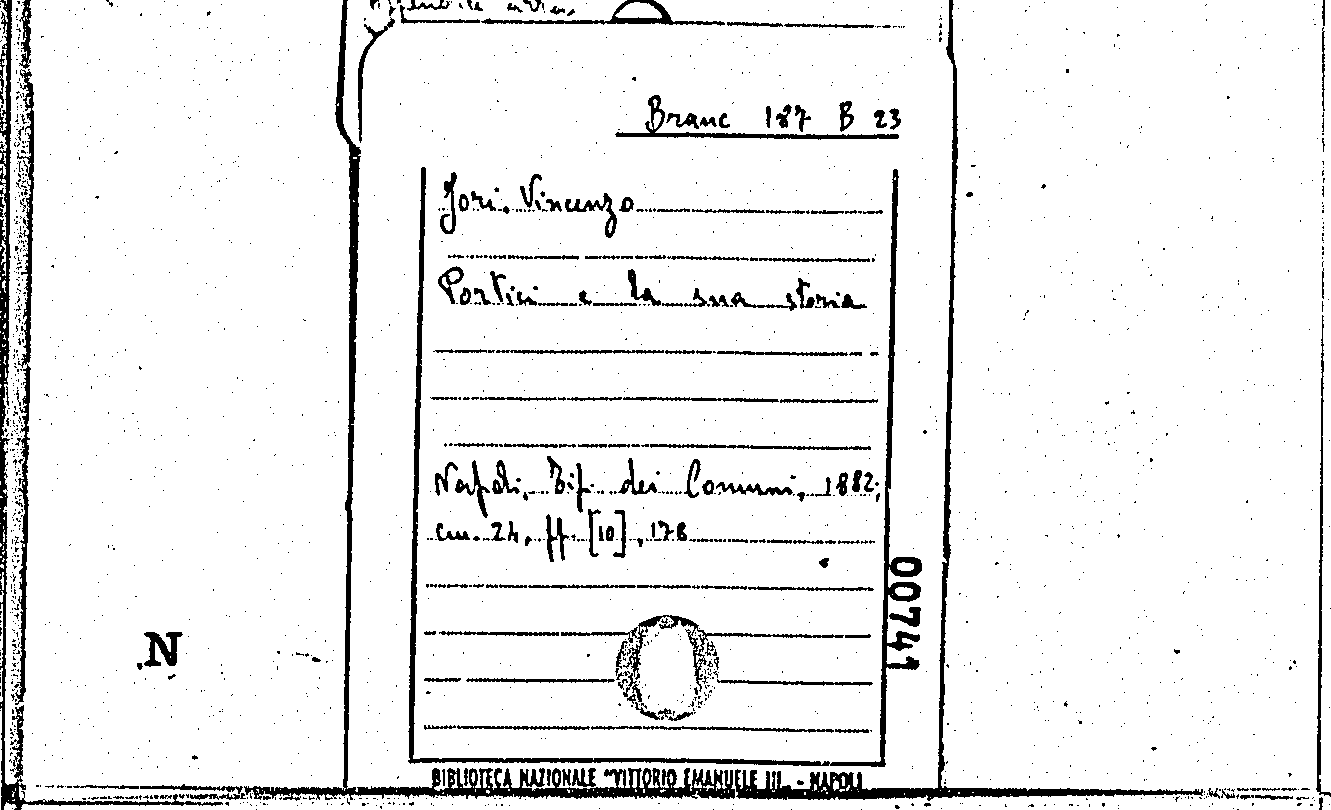 Branc 187 B 23
Jori, Vincenzo
Portici e la sua storia
Napoli, Tip. dei Comuni, 1882;
cm. 24, pp. [10], 178
00741
N
BIBLIOTECA NAZIONALE "VITTORIO EMANUELE III„ - NAPOLI